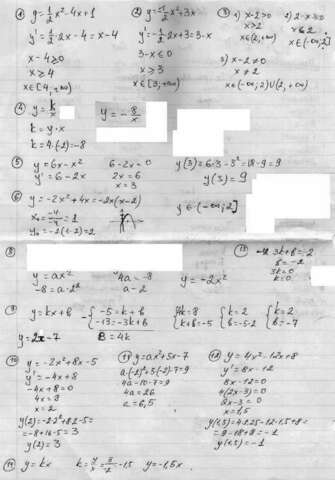 ① y = 1/2 x² - 4x + 1
y' = 1/2 · 2x - 4 = x - 4
x - 4 ≥ 0
x ≥ 4
x ∈ [4; +∞)
② y = -1/2 x² + 3x
y' = -1/2 · 2x + 3 = 3 - x
3 - x ≤ 0
x ≥ 3
x ∈ [3; +∞)
③ 1) x - 2 > 0
x > 2
x ∈ (2; +∞)
2) 2 - x ≥ 0
x ≤ 2
x ∈ (-∞; 2]
3) x - 2 ≠ 0
x ≠ 2
x ∈ (-∞; 2) U (2; +∞)
④ y = k/x
k = y · x
k = 4 · (-2) = -8
y = - 8/x
⑤ y = 6x - x²
y' = 6 - 2x
6 - 2x = 0
2x = 6
x = 3
y(3) = 6·3 - 3² = 18 - 9 = 9
y(3) = 9
⑥ y = -2x² + 4x = -2x(x - 2)
= 1
= 2
y ∈ (-∞; 2]
⑧
y = ax²
-8 = a · 2²
4a = -8
a - 2
y = -2x²
3k + b = -2
b = -2
3k = 0
k = 0
⑨ y = kx + b
-{ -5 = k + b
-13 = -3k + b
8 = 4k
{ 4k = 8
k + b = -5
{ k = 2
b = -5 - 2
{ k = 2
b = -7
y = 2x - 7
⑩ y = -2x² + 8x - 5
y' = -4x + 8
-4x + 8 = 0
4x = 8
x = 2
y(2) = -2·2² + 8·2 - 5 =
= -8 + 16 - 5 = 3
y(2) = 3
⑪ y = ax² + 5x - 7
a·(-2)² + 5·(-2) - 7 = 9
4a - 10 - 7 = 9
4a = 26
a = 6,5
⑫ y = 4x² - 12x + 8
y' = 8x - 12
8x - 12 = 0
4(2x - 3) = 0
2x - 3 = 0
x = 1,5
y(1,5) = 4·2,25 - 12·1,5 + 8 =
= 9 - 18 + 8 = -1
y(1,5) = -1
y = kx
y = -1,5x